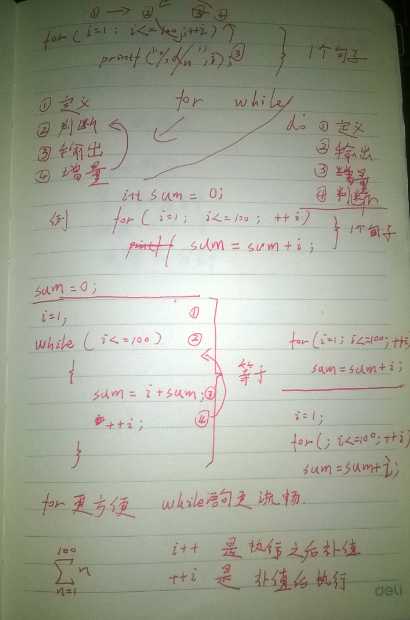 ① → ② ③ ④
for ( i=1 ; i<=100 ; ++i )
printf("%d\n", i); ③ } 1个句子
for while
① 定义
② 判断
③ 输出
④ 增量
do ① 定义
② 输出
③ 增量
④ 判断
int sum = 0;
例 for ( i=1; i<=100 ; ++i )
sum = sum + i ; } 1个句子
sum = 0;
i=1; ①
while ( i<=100 ) ②
{
sum = i + sum; ③
++i; ④
}
等于
for(i=1; i<=100; ++i)
sum = sum+i;
i=1;
for(; i<=100; ++i)
sum=sum+i;
for 更方便 while语句更流畅.
100
∑ n
n=1
i++ 是 执行之后 补值
++i 是 补值后执行
deli